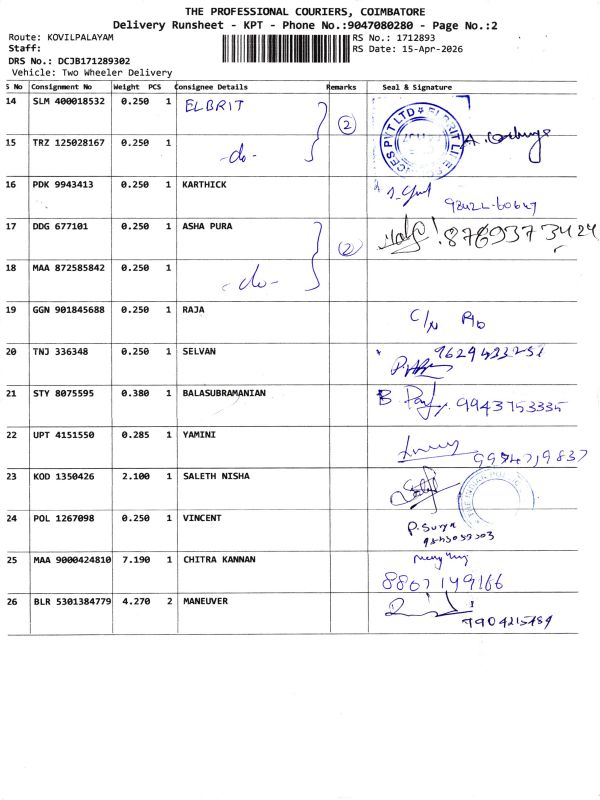 THE PROFESSIONAL COURIERS, COIMBATORE
Delivery Runsheet - KPT - Phone No.:9047080280 - Page No.:2
Route: KOVILPALAYAM RS No.: 1712893
Staff: RS Date: 15-Apr-2026
DRS No.: DCJB171289302
Vehicle: Two Wheeler Delivery
S No Consignment No Weight PCS Consignee Details Remarks Seal & Signature
14 SLM 400018532 0.250 1 ELBRIT 2
15 TRZ 125028167 0.250 1 -do-
16 PDK 9943413 0.250 1 KARTHICK
17 DDG 677101 0.250 1 ASHA PURA 2 8769373424
18 MAA 872585842 0.250 1 -do-
19 GGN 901845688 0.250 1 RAJA
20 TNJ 336348 0.250 1 SELVAN
21 STY 8075595 0.380 1 BALASUBRAMANIAN 9943753335
22 UPT 4151550 0.285 1 YAMINI
23 KOD 1350426 2.100 1 SALETH NISHA
24 POL 1267098 0.250 1 VINCENT P. Surya
25 MAA 9000424810 7.190 1 CHITRA KANNAN 8807149166
26 BLR 5301384779 4.270 2 MANEUVER